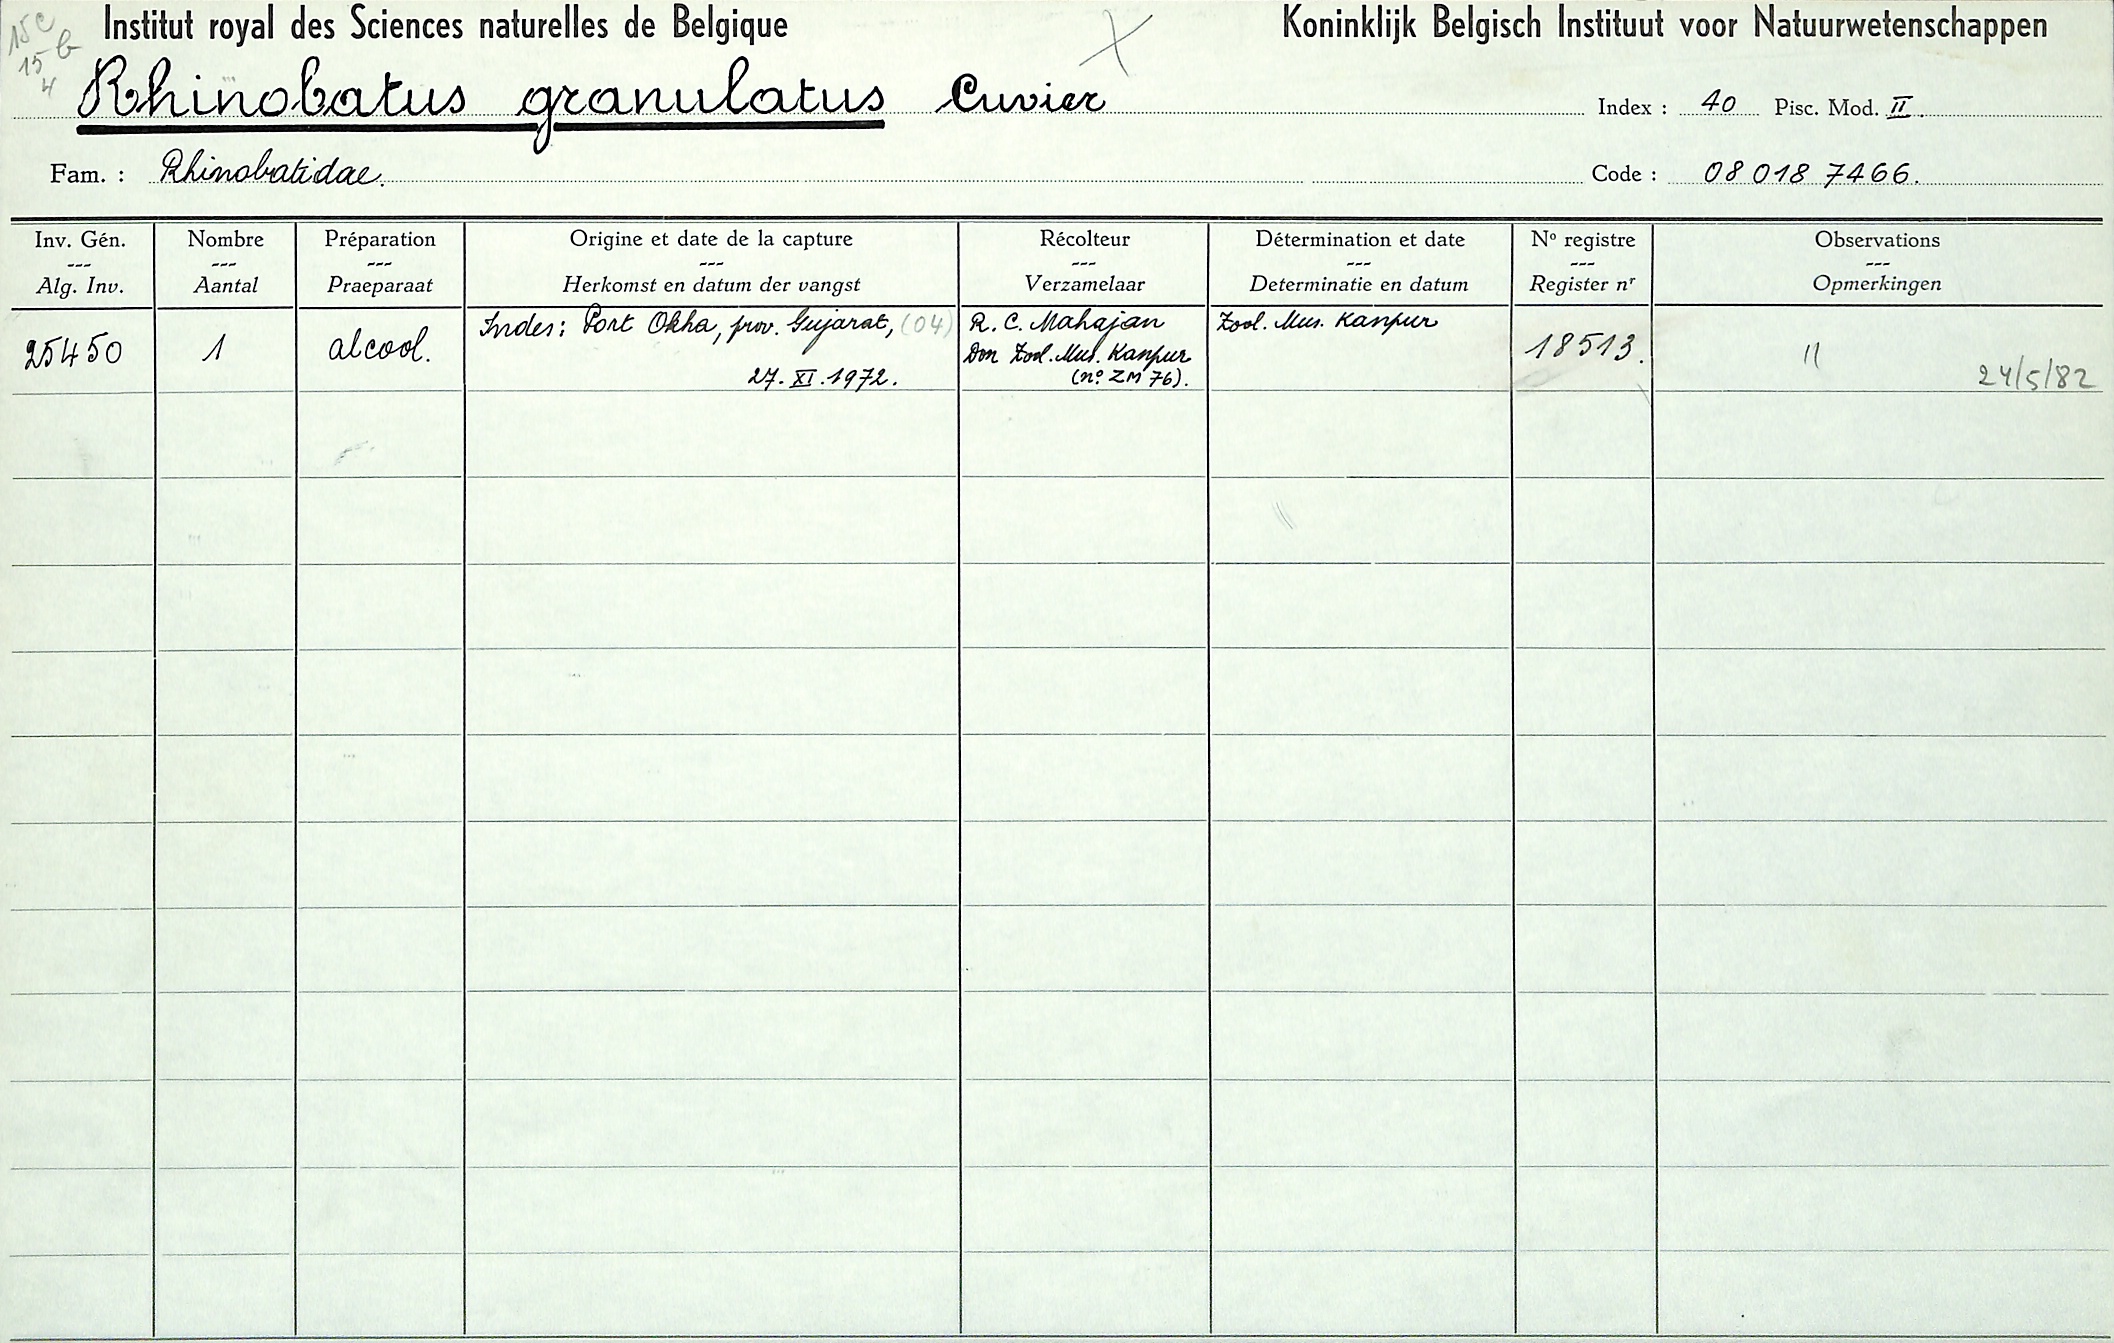 15c
15 b
4
Institut royal des Sciences naturelles de Belgique
Koninklijk Belgisch Instituut voor Natuurwetenschappen
Rhinobatus granulatus Cuvier
Index : 40 Pisc. Mod. II.
Fam. : Rhinobatidae.
Code : 08 018 7466.
Inv. Gén. Nombre Préparation Origine et date de la capture Récolteur Détermination et date Nº registre Observations
--- --- --- --- --- --- --- ---
Alg. Inv. Aantal Praeparaat Herkomst en datum der vangst Verzamelaar Determinatie en datum Register nr Opmerkingen
25450
1
alcool.
Indes: Port Okha, prov. Gujarat, (04)
27. XI. 1972.
R. C. Mahajan
Don Zool. Mus. Kanpur
(nº ZM 76).
Zool. Mus. Kanpur
18513.
24/5/82